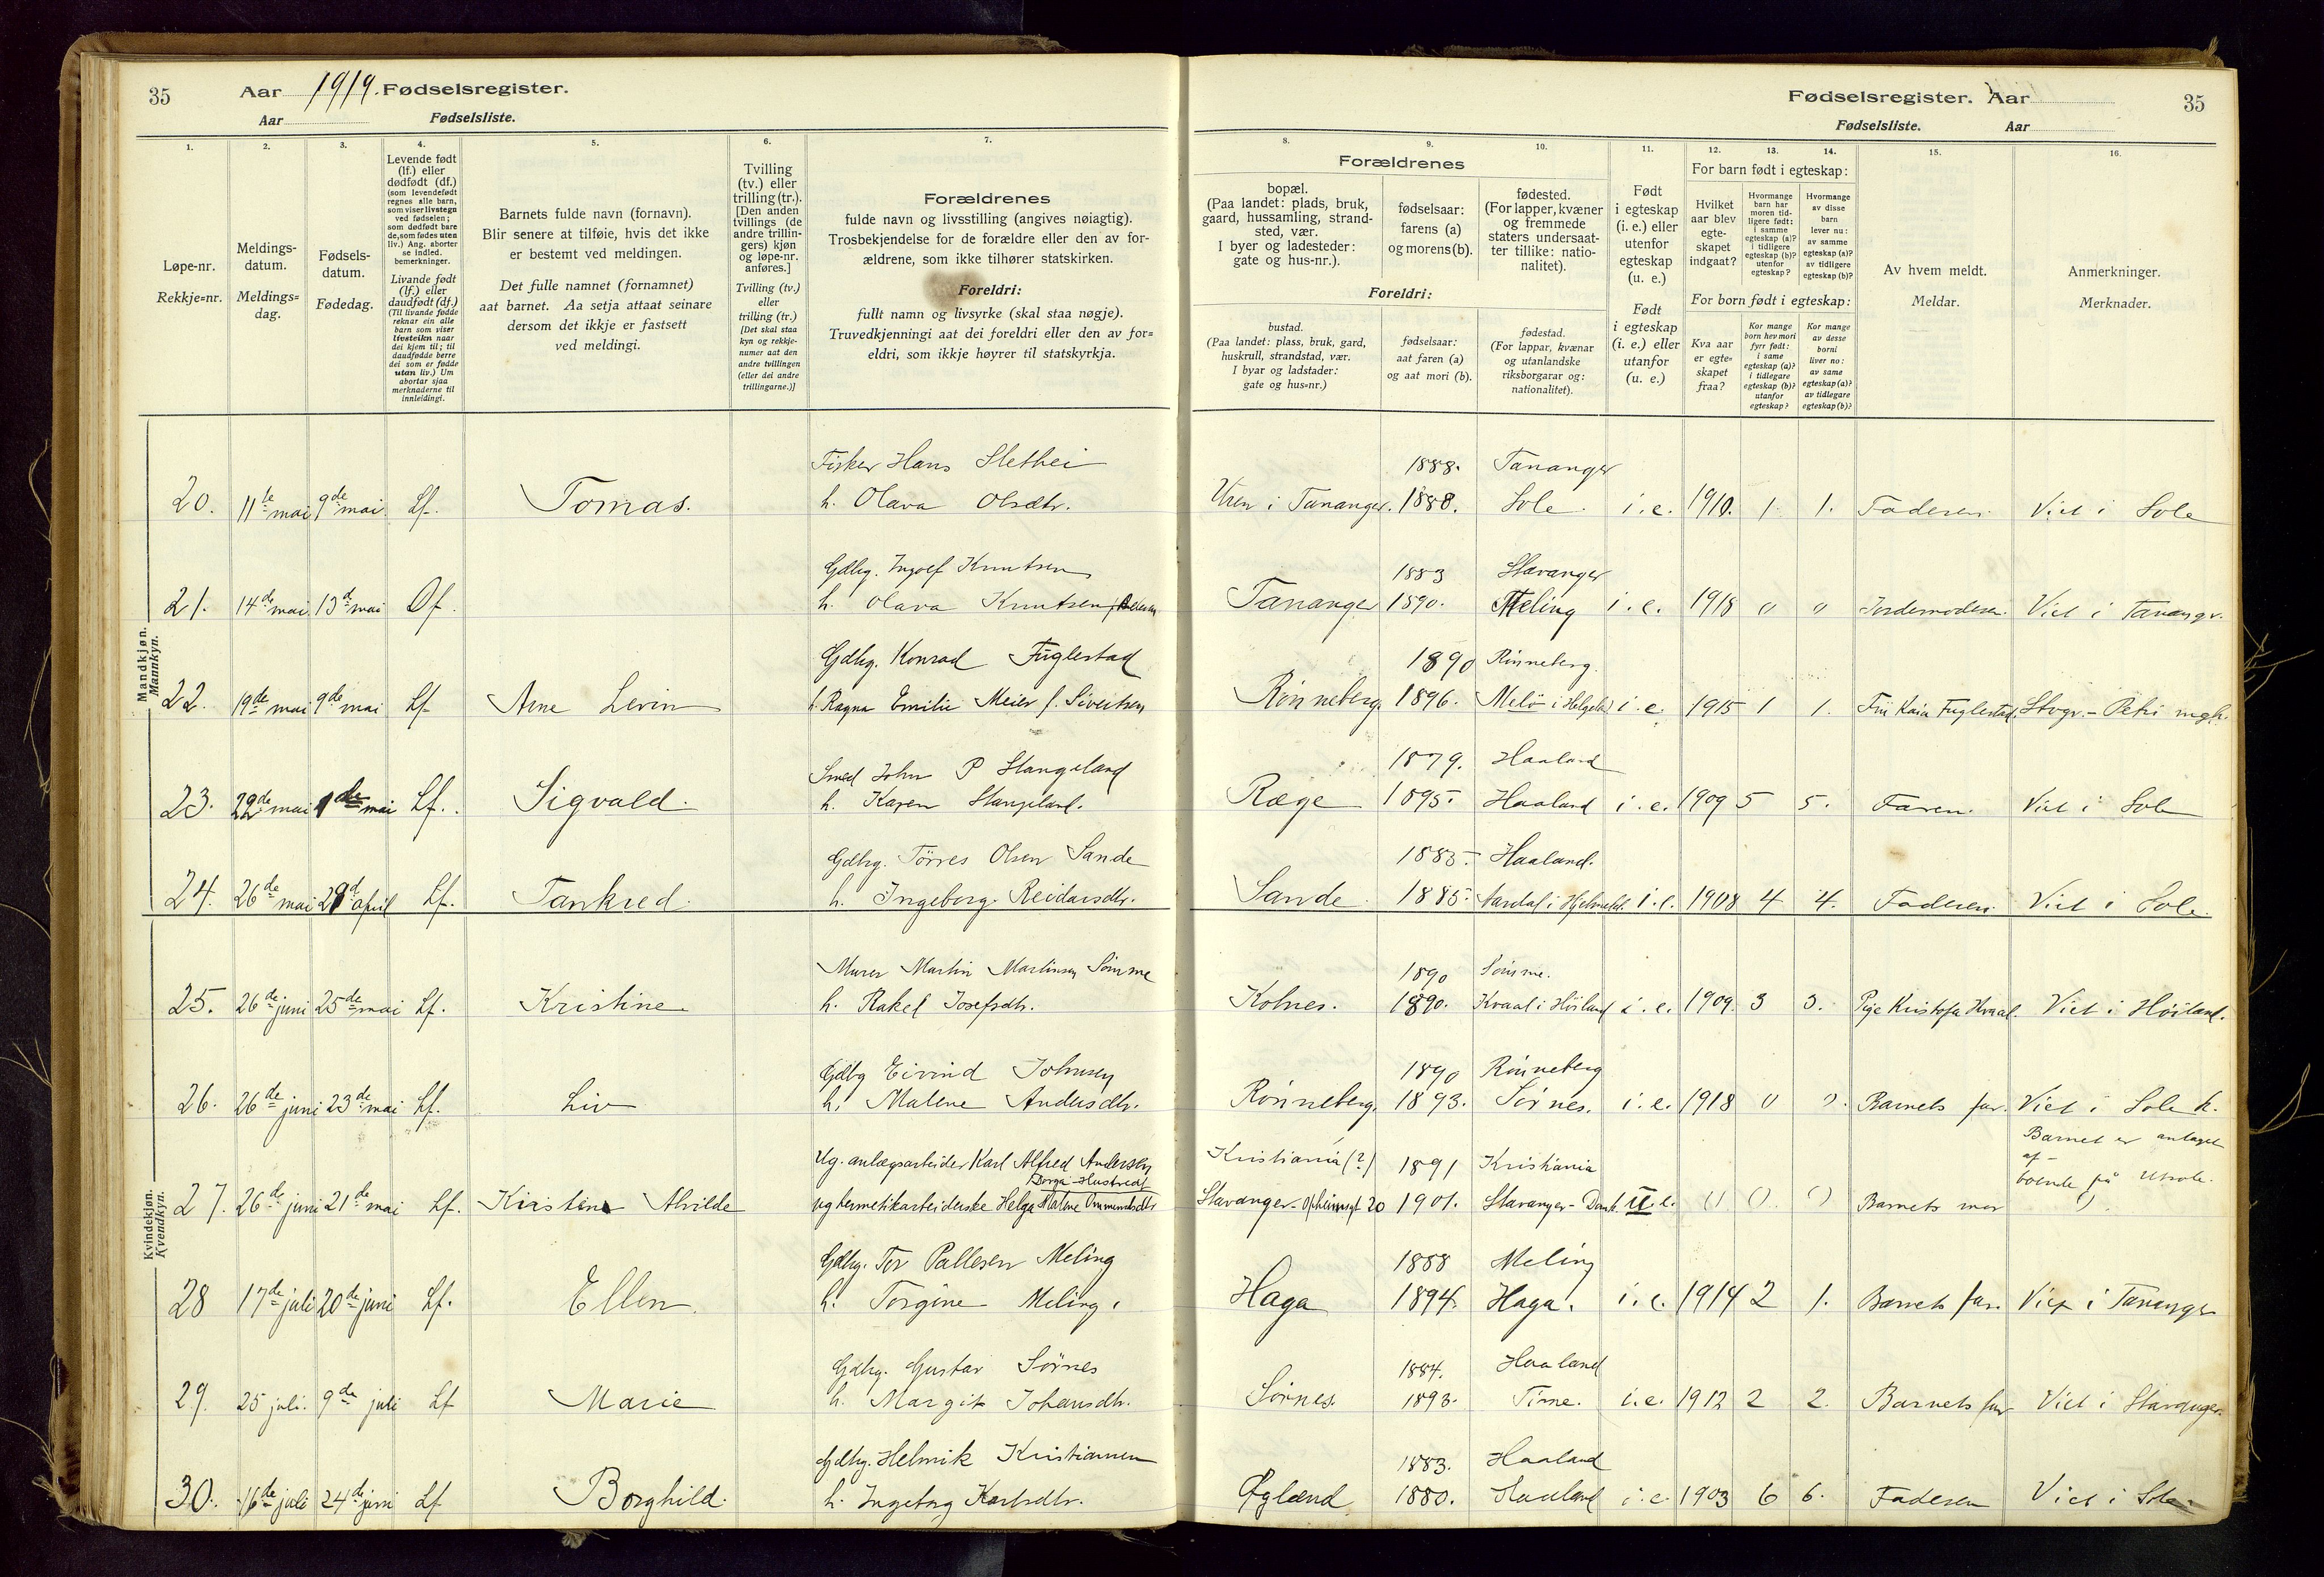 35
Aar 1919. Fødselsregister.
Aar Fødselsliste.
1.
Løpe-nr.
Rekkje=nr.
2.
Meldings-
datum.
Meldings=
dag.
3.
Fødsels-
datum.
Fødedag.
4.
Levende født
(lf.) eller
dødfødt (df.)
(som levendefødt
regnes alle barn,
som viser livstegn
ved fødselen;
som dødfødt bare
de, som fødes uten
liv.) Ang. aborter
se indled.
bemerkninger.
Livande født
(lf.) eller
daudfødt (df.)
(Til livande fødde
reknar ein alle
barn som viser
livsteikn naar
dei kjem til; til
daudfødde berre
dei som er fødde
utan liv.) Um
abortar sjaa
merknaderne til
innleidingi.
5.
Barnets fulde navn (fornavn).
Blir senere at tilføie, hvis det ikke
er bestemt ved meldingen.
Det fulle namnet (fornamnet)
aat barnet. Aa setja attaat seinare
dersom det ikkje er fastsett
ved meldingi.
6.
Tvilling
(tv.) eller
trilling (tr.).
[Den anden
tvillings (de
andre trillin-
gers) kjøn
og løpe-nr.
anføres.]
Tvilling (tv.)
eller
trilling (tr.)
[Det skal staa
kyn og rekkje-
numer aat den
andre tvillingen
(eller dei andre
trillingarne.)]
7.
Forældrenes
fulde navn og livsstilling (angives nøiagtig).
Trosbekjendelse for de forældre eller den av for-
ældrene, som ikke tilhører statskirken.
Foreldri:
fullt namn og livsyrke (skal staa nøgje).
Truvedkjenningi aat dei foreldri eller den av for=
eldri, som ikkje høyrer til statskyrkja.
Mandkjøn.
Mannkyn.
Fisker Hans Slethei
20. 11te mai 9de mai Lf. Tomas. h. Olava Olsdtr.
Gdbg. Ingolf Knutsen
21. 14de mai 13d mai Df. h. Olava Knutsen
Gdbg. Konrad Fuglestad
22. 19de mai 9de mai Lf. Arne Levin h. Ragna Emilie Meier f. Sivertsen
Smed John P Stangeland
23. 22de mai 1de mai Lf. Sigvald. h. Karen Stangeland.
Gdbg. Törres Olsen Sande
24. 26de mai 29d april Lf. Tankred. h. Ingeborg Reidarsdtr.
Kvindekjøn.
Kvendkyn.
Murer Martin Martinsen Sömme
25. 26de juni 25de mai Lf. Kristine h. Rakel Josefsdtr.
Gdbg Eivind Johnsen
26. 26de juni 23de mai Lf. Liv h. Malene Andersdtr.
Ug. anlægsarbeider Karl Alfred Andersen
27. 26de juni 21de mai Lf. Kirstine Alvilde ug hermetikarbeiderske Helga Malene Ommundsdtr
Gdbg. Tor Pallesen Meling
28 17de juli 20de juni Lf. Ellen. h. Torgine Meling.
Gdbg. Gustav Sörnes
29. 25 juli. 9de juli Lf Marie h. Margit Johansdtr.
Gdbg. Helmik Kristiansen
30. 16de juli 24d juni Lf Borghild. h. Ingeborg Karlsdtr.
Fødselsregister. Aar
35
Fødselsliste. Aar
8.
Forældrenes
bopæl.
(Paa landet: plads, bruk,
gaard, hussamling, strand-
sted, vær.
I byer og ladesteder:
gate og hus-nr.).
Foreldri:
bustad.
(Paa landet: plass, bruk, gard,
huskrull, strandstad, vær.
I byar og ladstader:
gate og hus-nr.)
9.
fødselsaar:
farens (a)
og morens (b).
fødselsaar:
aat faren (a)
og aat mori (b).
10.
fødested.
(For lapper, kvæner
og fremmede
staters undersaat-
ter tillike: natio-
nalitet).
fødestad.
(For lappar, kvænar
og utanlandske
riksborgarar og:
nationalitet).
11.
Født
i egteskap
(i. e.) eller
utenfor
egteskap
(u. e.)
Født
i egteskap
(i. e.) eller
utanfor
(u. e.)
12. 13. 14.
For barn født i egteskap:
Hvilket
aar blev
egte-
skapet
indgaat?
Hvormange
barn har
moren tid-
ligere født:
i samme
egteskap (a)?
i tidligere
egteskap (b)?
utenfor
egteskap?
Hvormange
av disse
barn
lever nu:
av samme
egteskap (a)?
av tidligere
egteskap (b)?
For born født i egteskap:
Kva aar
er egte=
skapet
fraa?
Kor mange
born hev mori
fyrr født:
i same
egteskap (a)?
i tidlegare
egteskap (b)?
utanfor
egteskap?
Kor mange
av desse
borni
liver no:
av same
egteskap (a)?
av tidlegare
egteskap (b)?
15.
Av hvem meldt.
Meldar.
16.
Anmerkninger.
Merknader.
1888. Tananger
i Tananger. 1888. Sole. i. e. 1910. 1 1. Faderen. Viet i Sole
1883 Stavanger
Tananger 1890. Meling i. e. 1918 0 0 Jordemoderen. Viet i Tananger.
1890 Rönneberg.
Rönneberg. 1896. Melö i Helgeld i. e. 1915 1 1. Frü Kaia Fuglestad. Stvgr. - Petri mgh.
1879. Haaland
Ræge 1895. Haaland i. e. 1909 5 5. Faren. Viet i Sole
1885. Haaland.
Sande 1885. i Hjelmeld. i. e. 1908 4 4. Faderen. Viet i Sole.
1890 Sömme.
Kolnes. 1890. Kvaal i Höiland i. e. 1909. 3 3. Pige Kristofa Kvaal. Viet i Höiland.
1890 Rönneberg
Rönneberg. 1893. Sörnes. i. e. 1918 0 0. Barnets far. Viet i Sole k.
Kristiania (?) 1891 Kristiania Barnet er antaget
af -
boende på Utsola.
Stavanger - 20 1901. Stavanger - u. e. 0 0 0 Barnets mor
1888 Meling
Haga 1894. Haga. i. e. 1914 2 1. Barnets far. Viet i Tananger
1884. Haaland
Sörnes. 1893. Time. i. e. 1912 2 2. Barnets far Viet i Stavanger.
1883. Haaland
Øglænd 1880. Haaland i. e. 1903 6 6. Faderen Viet i Sole.